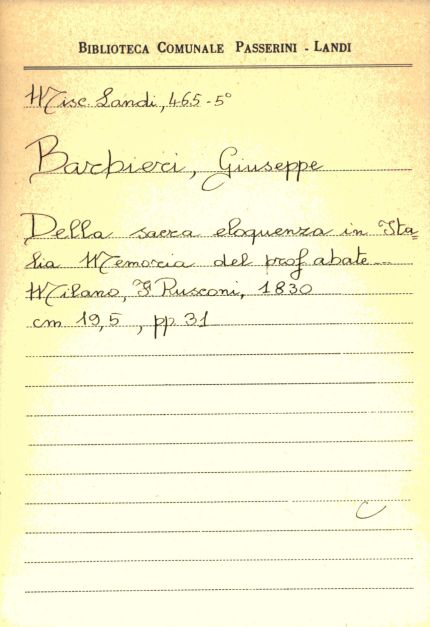 BIBLIOTECA COMUNALE PASSERINI - LANDI
Misc. Landi, 465-5°
Barbieri, Giuseppe
Della sacra eloquenza in Ita=
lia Memoria del prof. abate...
Milano, F Rusconi, 1830
cm 19,5, pp 31
C